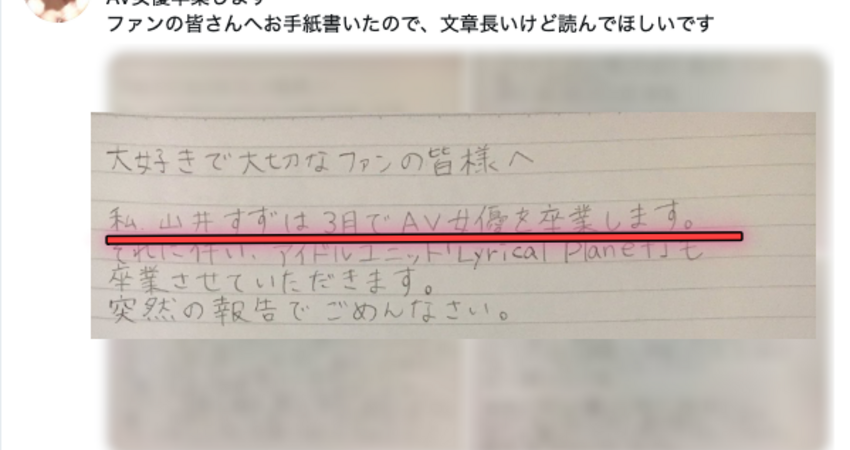 AV女優卒業します
ファンの皆さんへお手紙書いたので、文章長いけど読んでほしいです
大好きで大切なファンの皆様へ
私、山井すずは3月でAV女優を卒業します。
それに伴い、アイドルユニット「Lyrical Planet」も
卒業させていただきます。
突然の報告でごめんなさい。